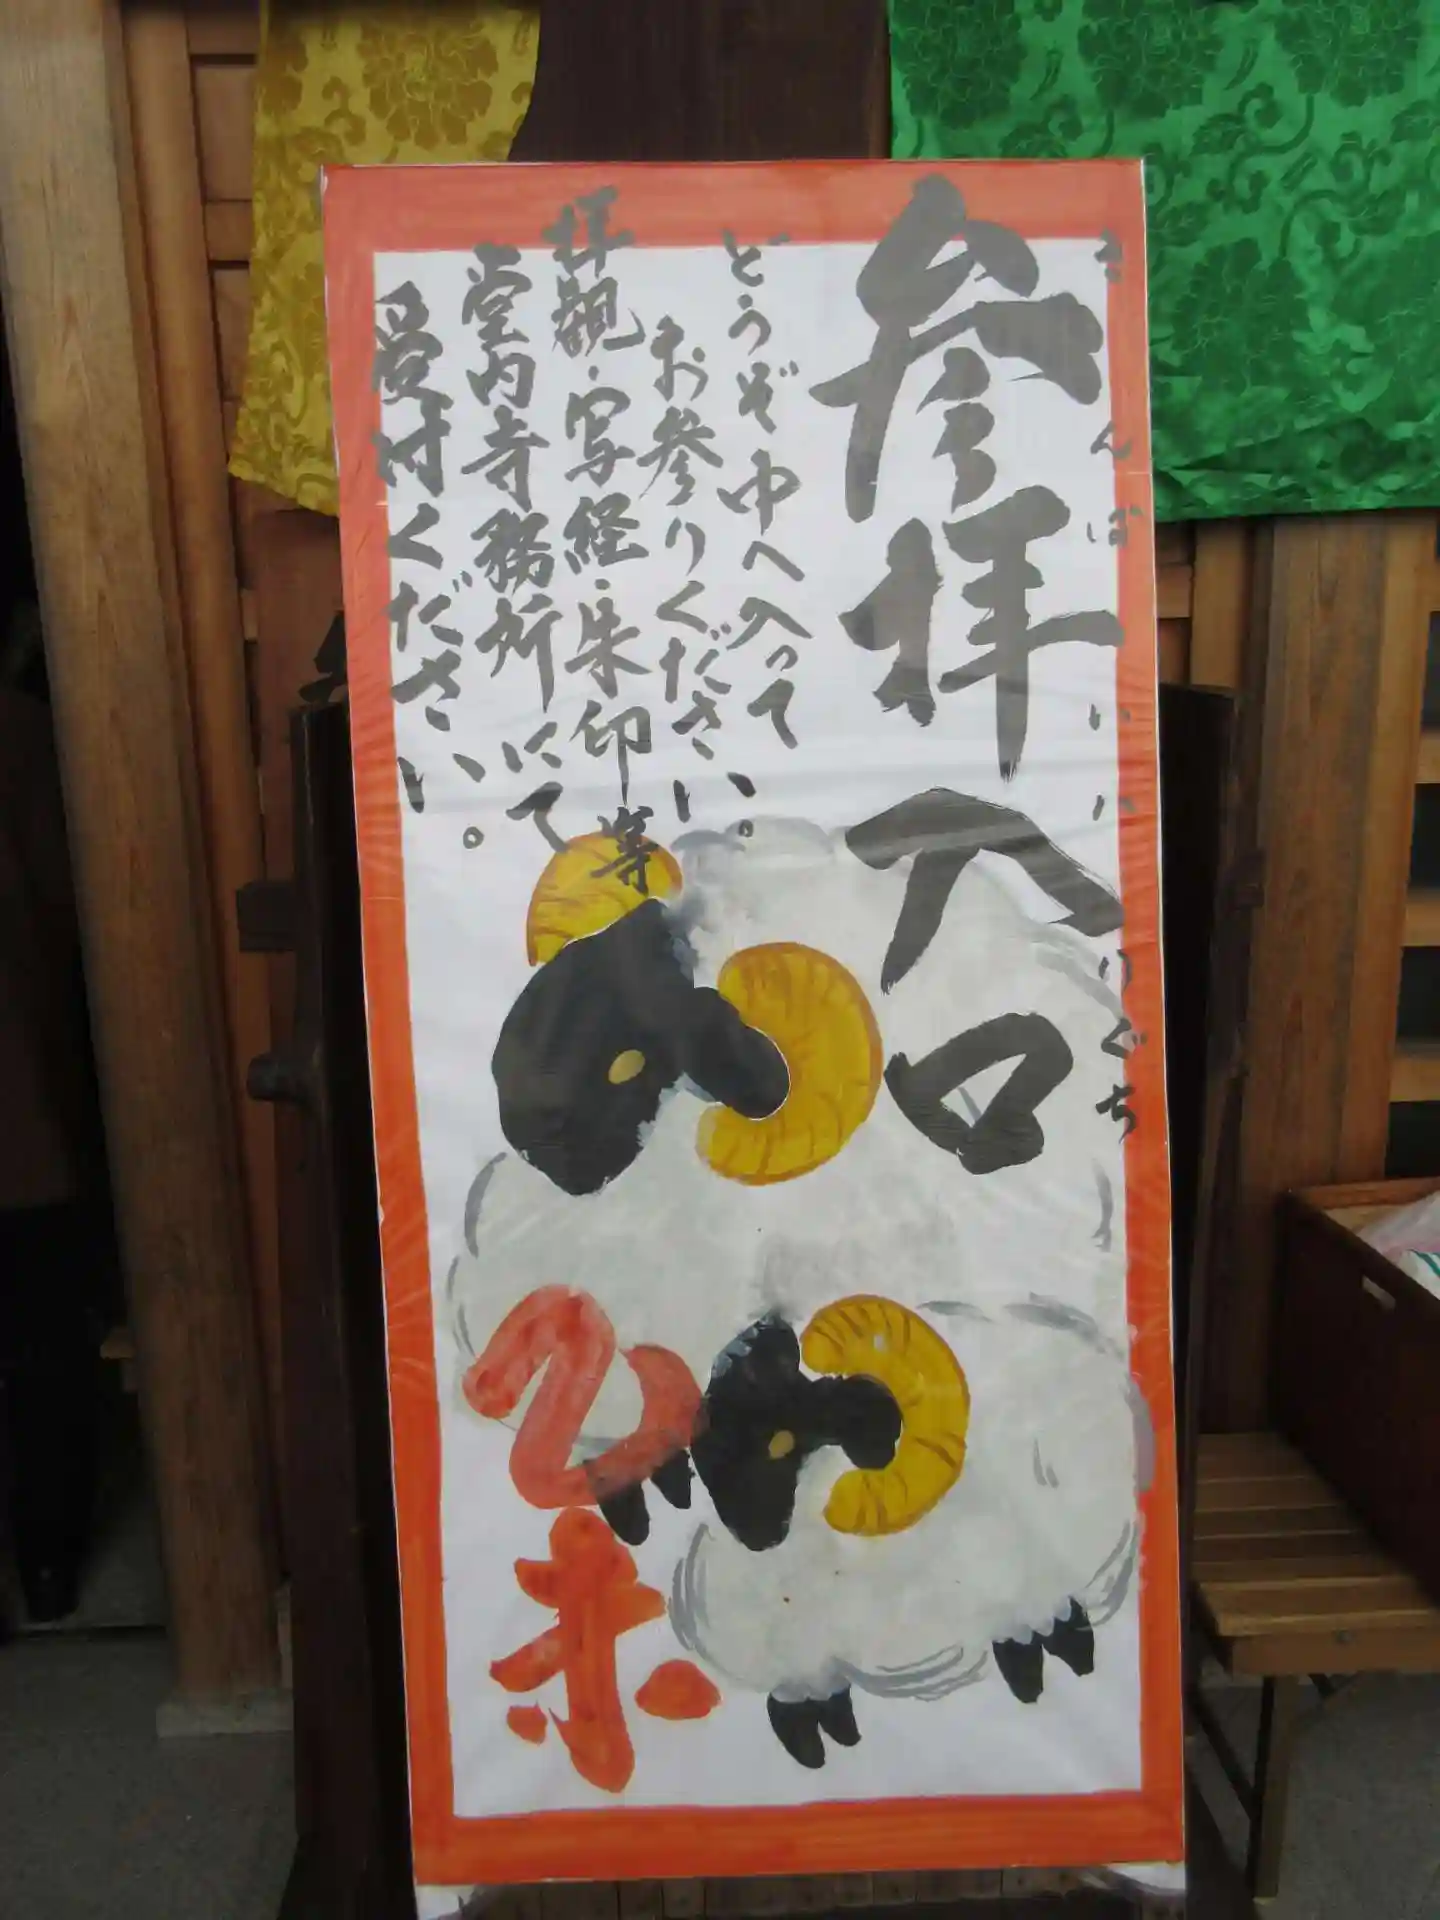 参拝入口
さんぱいいりぐち
どうぞ中へ入って
お参りください。
拝観・写経・朱印等
堂内寺務所にて
受付ください。
乙未